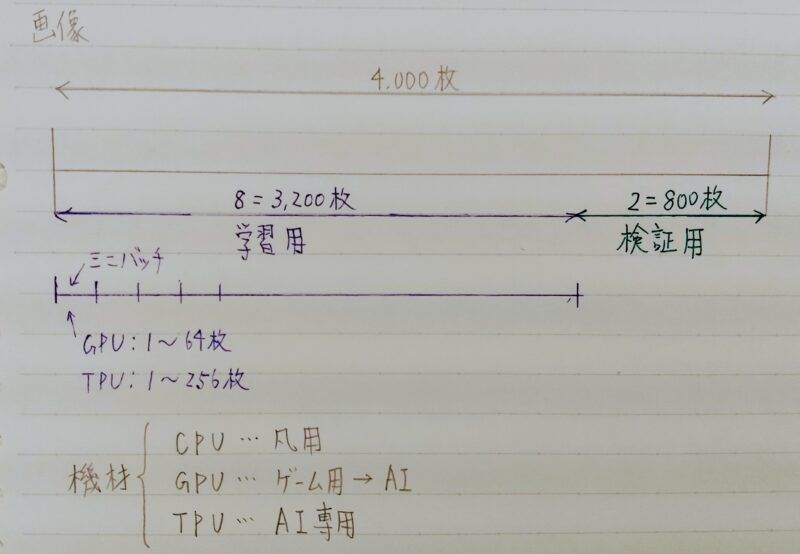 画像
4,000枚
8=3,200枚
2=800枚
学習用
検証用
ミニバッチ
GPU:1〜64枚
TPU:1〜256枚
機材
CPU…凡用
GPU…ゲーム用→AI
TPU…AI専用